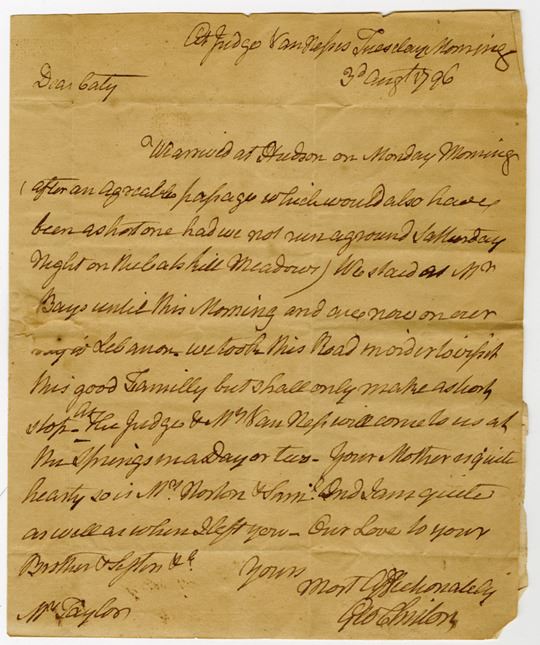 At Judge Van Ness's Tuesday Morning
3d Augt 1796
Dear Caty
We arrived at Hudson on Monday Morning
(after an agreable passage which would also have
been a short one had we not run aground Satturday
Night on the Catskill Meadows) We staid at Mr
Bays until this Morning and are now on our
way to Lebanon - we took this Road in order to visit
this good Familly but shall only make a short
stop - The Judge & Mrs Van Ness will come to us at
the Springs in a Day or two - Your Mother is quite
hearty so is Mrs Norton & And I am quite
as well as when I left you - Our Love to your
Brother & Sister &c
Yours
Most Affectionately
Mrs Taylor
Geo Clinton